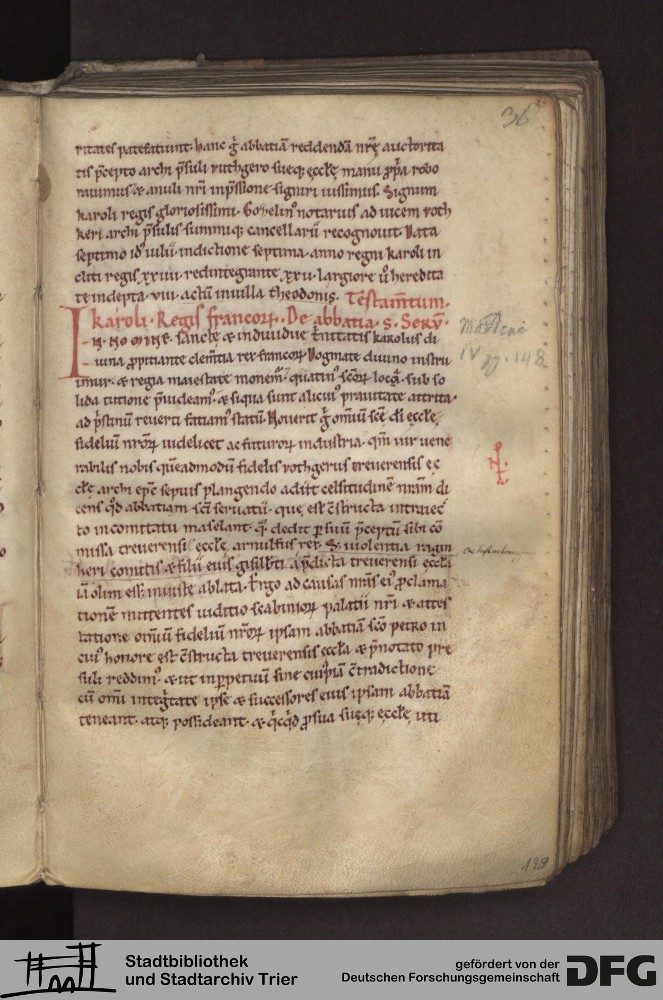 36
ritates patefatiunt. hanc g̃ abbatiã reddendã nr̃ę auctorita
tis p̃cepto archi p̃suli ruthgero sueq; ęcclę manu ꝓp̃a robo
rauimus & anuli nr̃i inp̃ssione signiri iussimus. Signum
karoli regis gloriosissimi. Gozelin᷒ notarius ad uicem roth
keri archi p̃sulis summiq; cancellarii recognouit. Data
septimo id᷒ iulii. indictione septima. anno regni karoli in
cliti regis xxvii. redintegrante xxii. largiore ũ heredita
te indepta. viii. actũ in uilla theodonis. Testam̃tum.
karoli. Regis francoꝝ. De abbatia. s. Seruͣ.
IN NOMINE sanctę & indiuidue t̃nitatis karolus di
uina ꝓpitiante clem̃tia rex francoꝝ Dogmate diuino instru
imur. & regia maiestate monem᷒. quatin᷒ sc̃oꝝ loca. sub so
lida tuitione p̃uideam᷒. & siqua sunt alicui᷒ prauitate attrita.
ad p̃stinũ reuerti fatiam᷒ statũ. Nouerit g̃ omniũ sc̃e dĩ ęcclę
fideliũ nr̃oꝝ uidelicet ac futuroꝝ industria. qm̃ uir uene
rabilis nobis quẽadmodũ fidelis rothgerus treuerensis ęc
clę archi ep̃c sepius plangendo adiit celsitudinẽ nr̃am di
cens qd̃ abbatiam sc̃i seruatii. que est c̃structa intraiec
to in comitatu maselant. q̃ dedit p suũ p̃ceptũ sibi cõ
missa treuerensi ęcclę arnulfus rex. S; uiolentia ragin
heri comitis & filii eius gislib̃ti a p̃dicta treuerensi ęcclã
iã olim ess; iniuste ablata. Ergo ad causas nr̃as ei᷒ ꝓclama
tionẽ mittentes iuditio scabinioꝝ palatii nr̃i & attes
tatione omniũ fideliũ nr̃oꝝ ipsam abbatiã sc̃o petro in
cui᷒ honore est c̃structa treuerensis ęccla & p̃notato pre
suli reddim᷒. & ut inp̱petuũ sine cui᷒piã c̃tradictione
cũ omi integ̃tate ipse & successores eius ipsam abbatiã
teneant. atq; possideant. & q̃cq̃d ꝓ sua sueq; ęcclę uti
IV p. 148
129
Stadtbibliothek
und Stadtarchiv Trier
gefördert von der
Deutschen Forschungsgemeinschaft
DFG